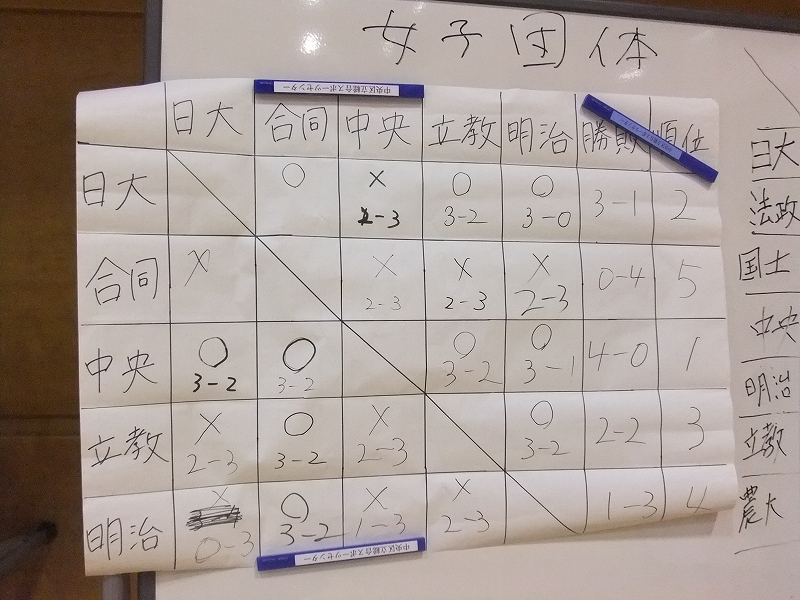 女子団体
中央区立総合スポーツセンター
日大 合同 中央 立教 明治 勝敗 順位
日大 ○ × 2-3 ○ 3-2 ○ 3-0 3-1 2
合同 × × 2-3 × 2-3 × 2-3 0-4 5
中央 ○ 3-2 ○ 3-2 ○ 3-2 ○ 3-1 4-0 1
立教 × 2-3 ○ 3-2 × 2-3 ○ 3-2 2-2 3
明治 × 0-3 ○ 3-2 × 1-3 × 2-3 1-3 4
中央区立総合スポーツセンター
日大
法政
国士
中央
明治
立教
農大